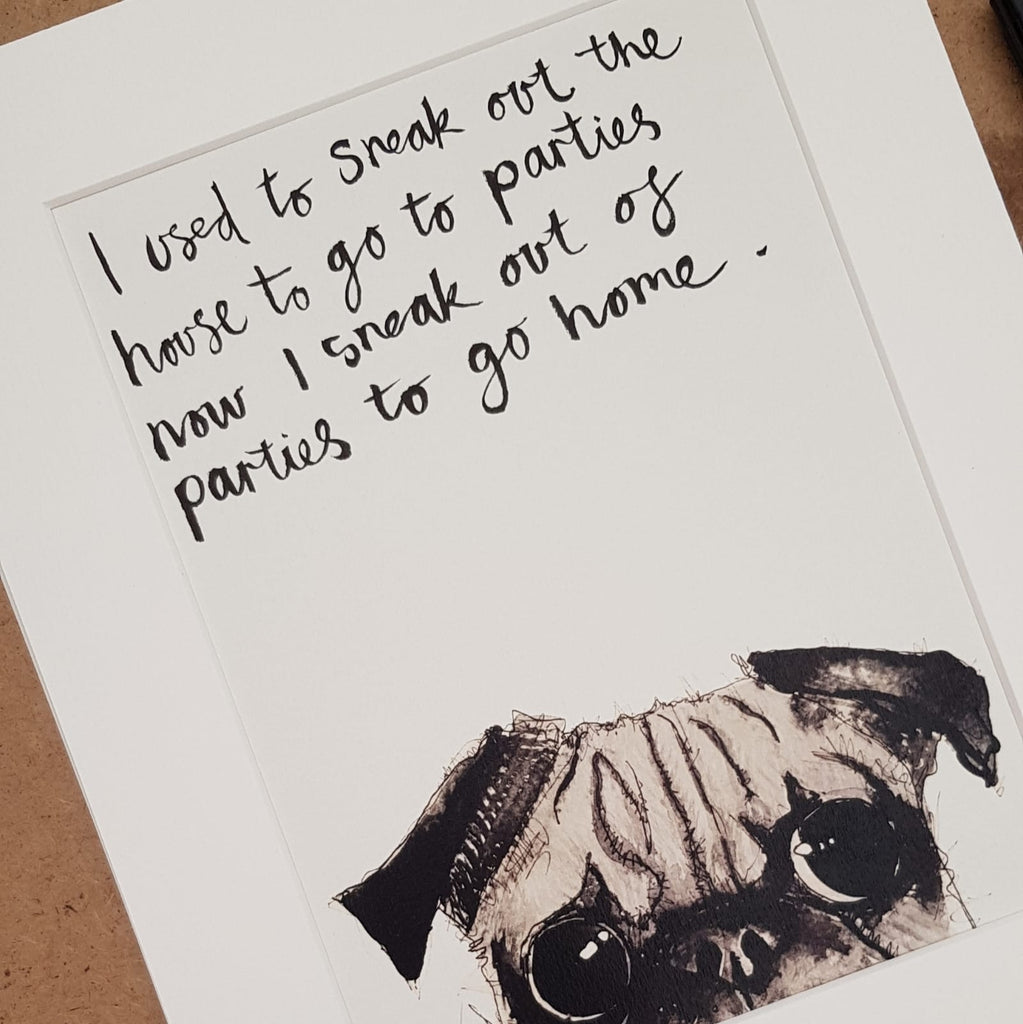 I used to sneak out the
house to go to parties
now I sneak out of
parties to go home.